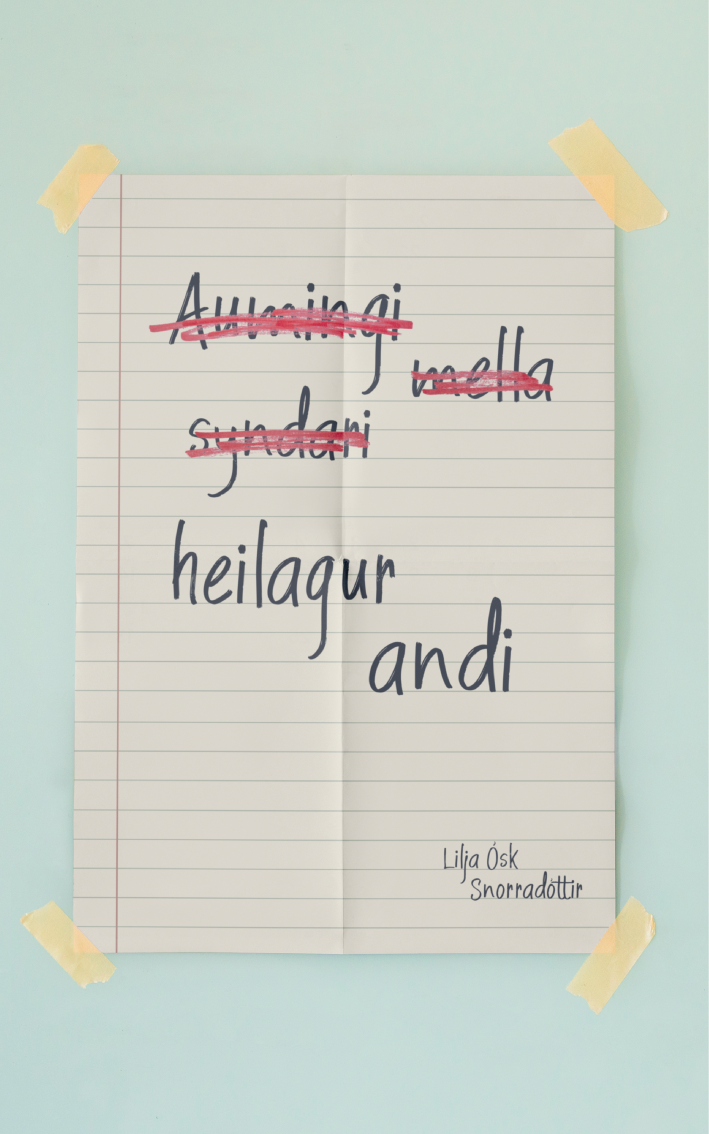 Aumingi
mella
syndari
heilagur
andi
Lilja Ósk
Snorradóttir